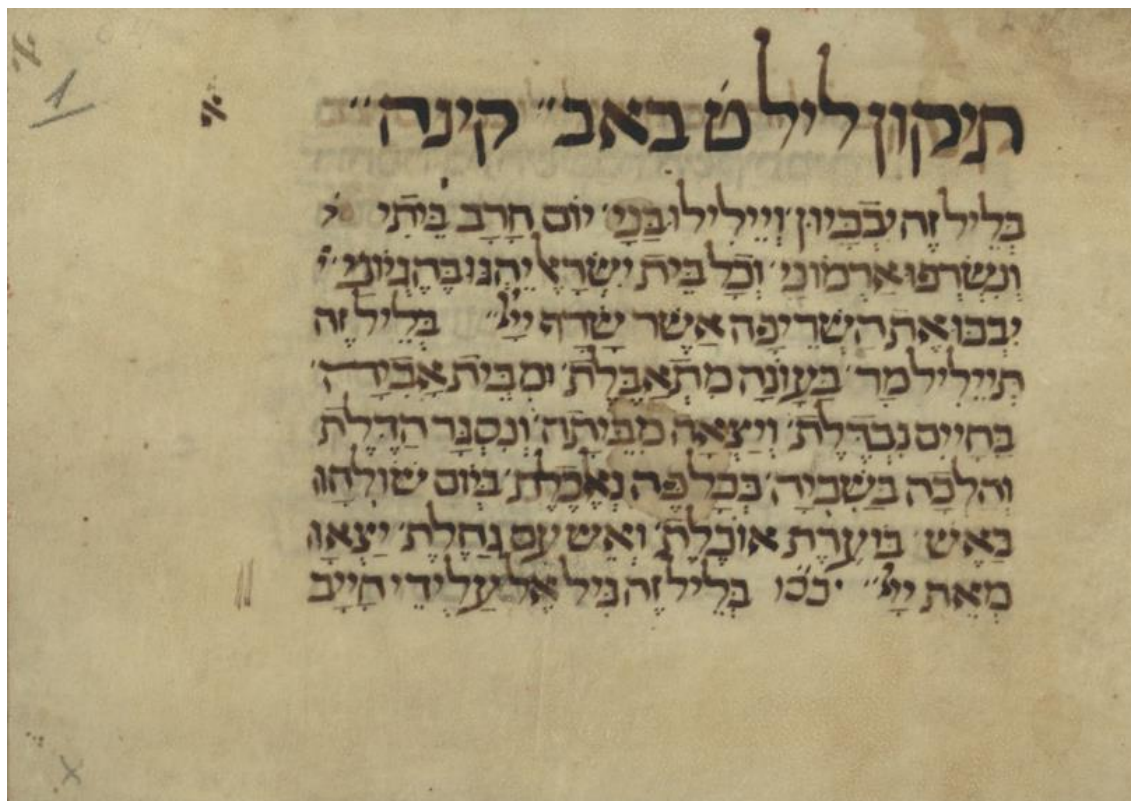 א
1
א
תיקון ליל ט באב״ קינה״
בְּלֵיל זֶה יִבְכָּיוּן׳ וְיֵילִילוּ בָּנָי׳ יוֹם חָרַב בֵּיתִי
וְנִשְׂרְפוּ אַרְמוֹנָי׳ וְכָל בֵּית יִשְׂרָאֵל יֶהְגּוּ בְּהֶגְיוֹנָי״
יִבְכּוּ אֶת הַשְּׂרֵיפָה אֲשֶׁר שָׂרַף יְיָ״ בְּלֵיל זֶה
תְּיֵילִיל מַר׳ בַּעֲוֹנָהּ מִתְאַבֶּלֶת׳ וּמִבֵּית אָבִידָה׳
בַּחַיִּים נִבְדֶּלֶת׳ וְיָצְאָה מִבֵּיתָהּ׳ וְנִסְגַּר הַדֶּלֶת
וְהָלְכָה בַּשִׁבְיָה׳ בְּכָל פֶּה נֶאֱכֶלֶת׳ בְּיוֹם שׁוּלְּחָה
בָּאֵשׁ׳ בּוֹעֶרֶת אוֹכֶלֶת׳ וְאֵשׁ עִם גַּחֶלֶת׳ יָצְאָה
מֵאֵת יְיָ״ יבכו בְּלֵיל זֶה גִּיל אֵל עַל יְדֵי חַיָּיב